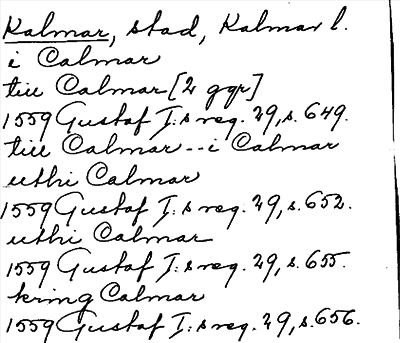 Kalmar, stad, Kalmar l.
i Calmar
till Calmar [2 ggr]
1559 Gustaf I:s reg. 29, s. 649.
till Calmar -- i Calmar
uthi Calmar
1559 Gustaf I:s reg. 29, s. 652.
uthi Calmar
1559 Gustaf I:s reg. 29, s. 655.
kring Calmar
1559 Gustaf I:s reg. 29, s. 656.